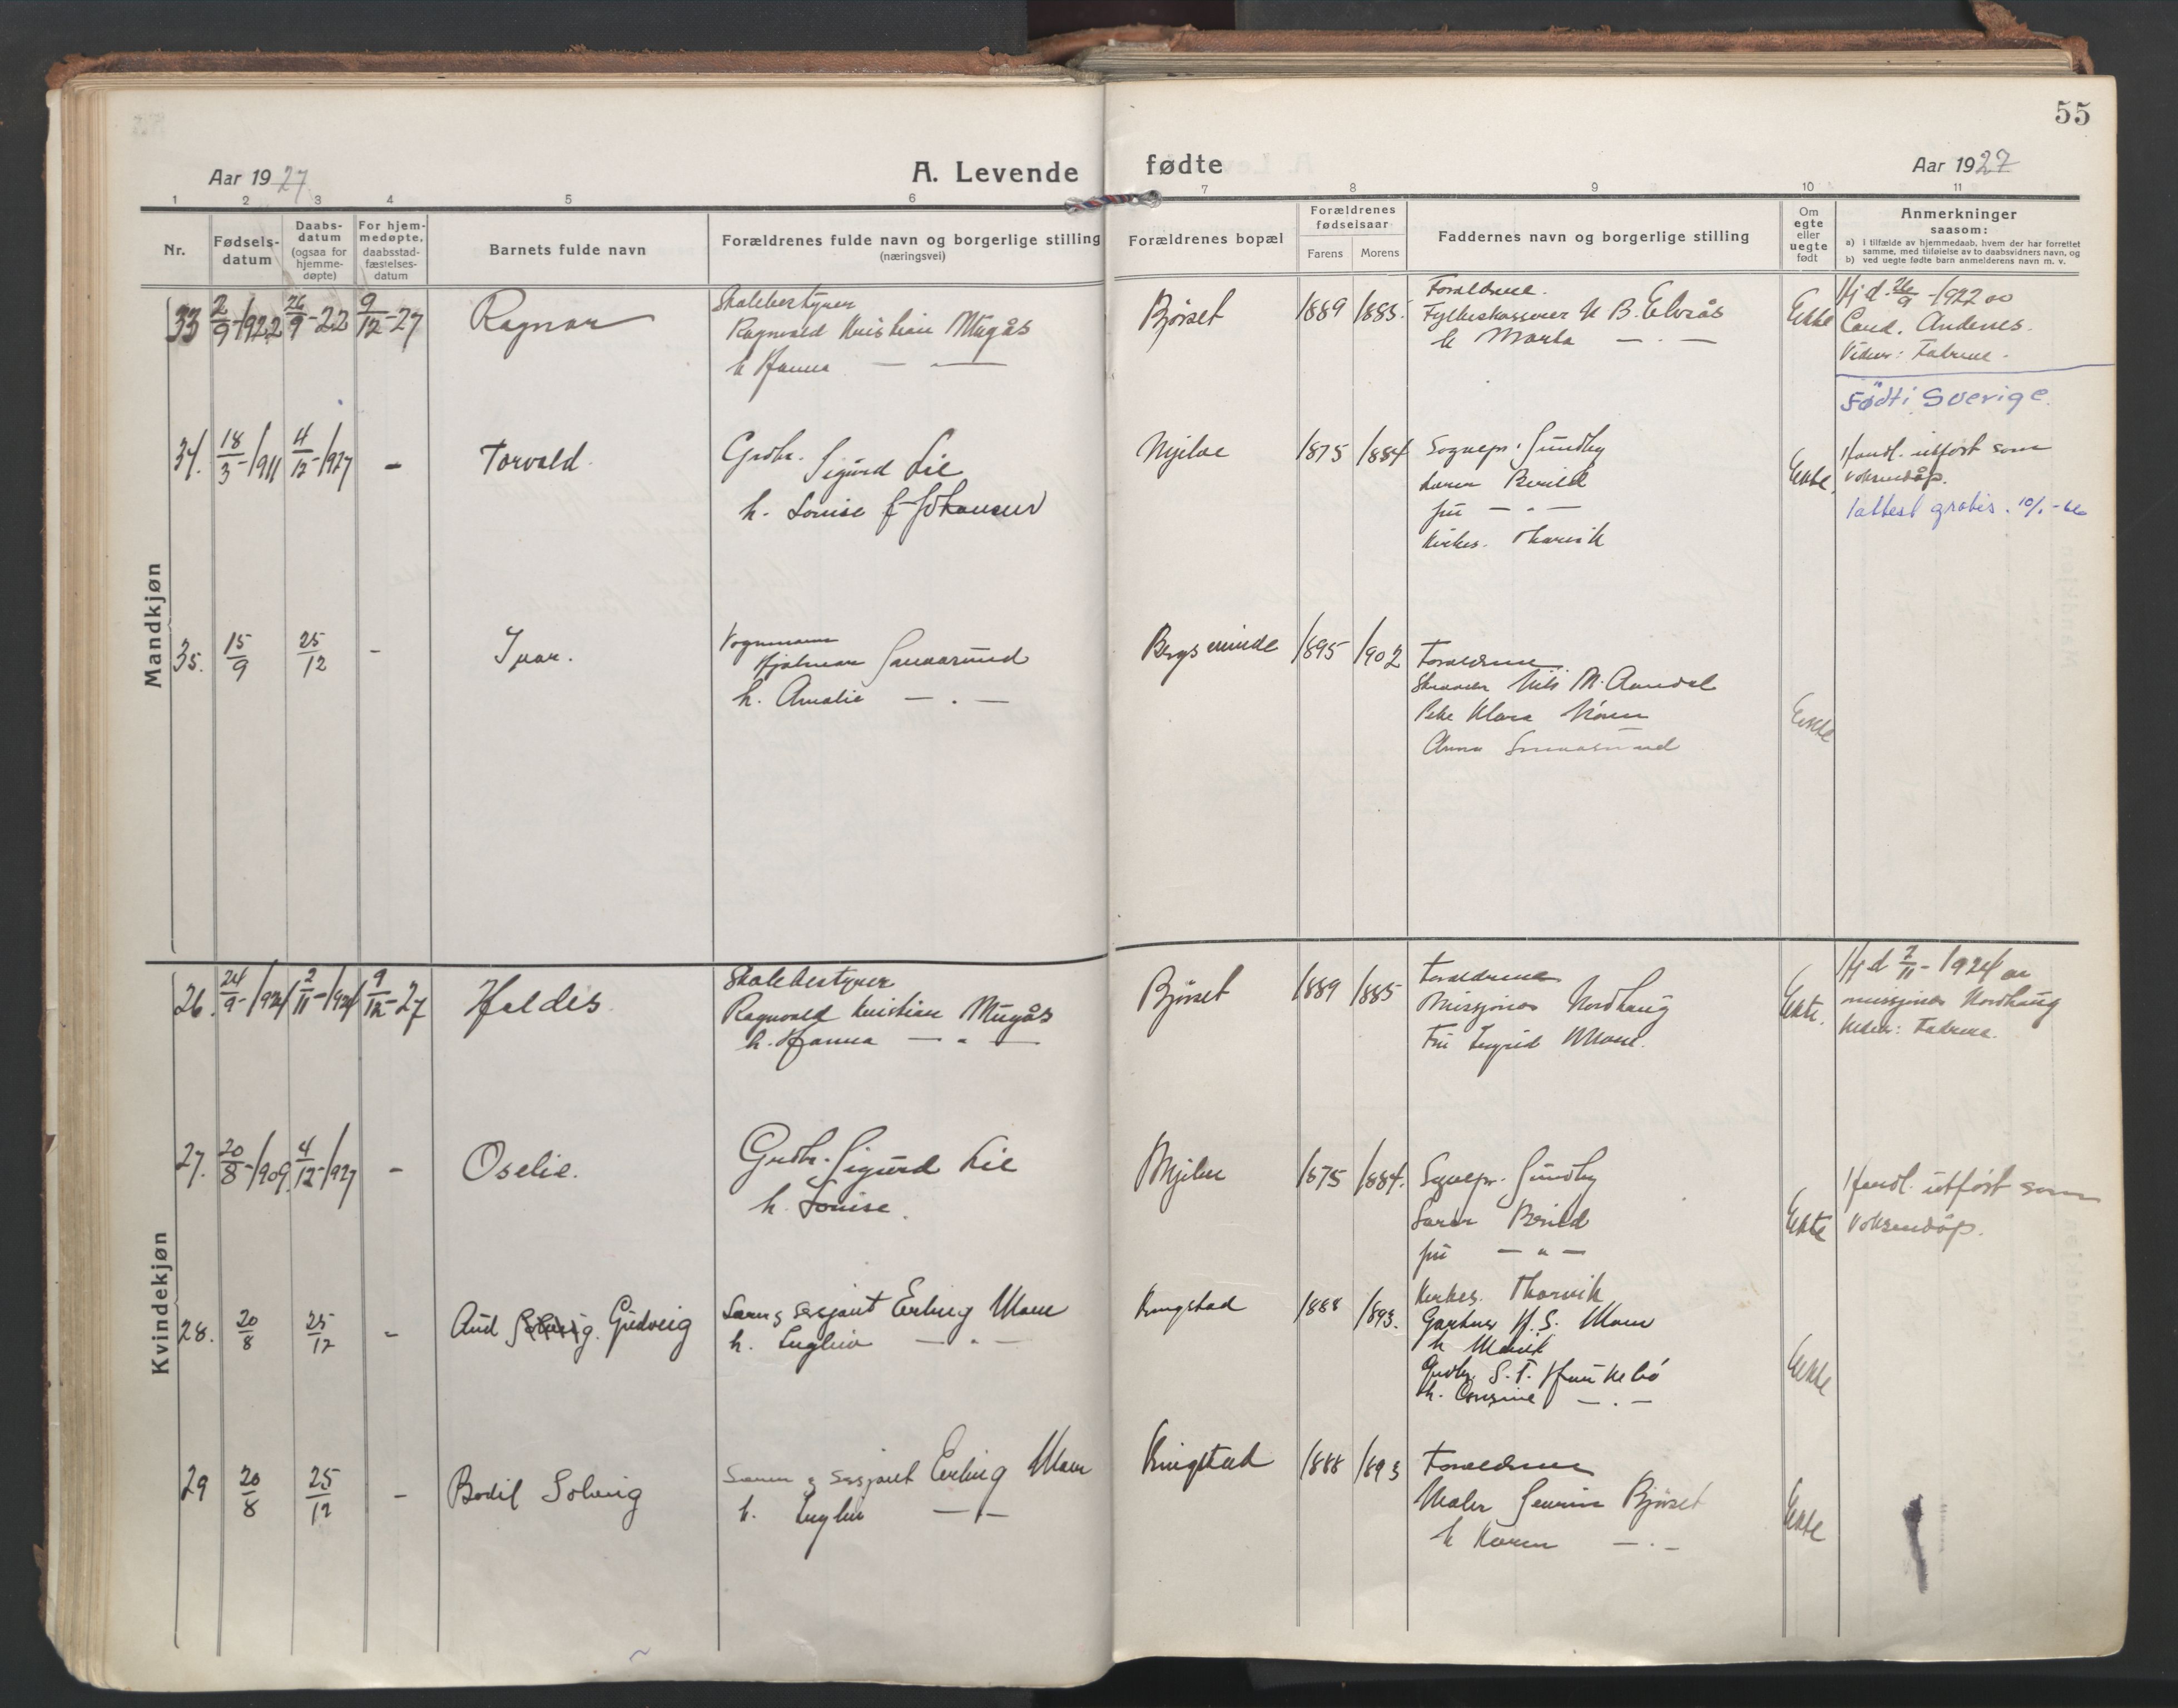 55
Aar 1927
A. Levende fødte
Aar 1927
1 2 3 4 5 6 7 8 9 10 11
Nr.
Fødselsdatum
Daabsdatum (ogsaa for hjemmedøpte)
For hjemmedøpte, daabsstadfæstelsesdatum
Barnets fulde navn
Forældrenes fulde navn og borgerlige stilling (næringsvei)
Forældrenes bopæl
Forældrenes fødselsaar
Farens Morens
Faddernes navn og borgerlige stilling
Om egte eller uegte født
Anmerkninger saasom:
a) i tilfælde av hjemmedaab, hvem der har forrettet samme, med tilføielse av to daabsvidners navn, og
b) ved uegte fødte barn anmelderens navn m. v.
Mandkjøn
33 2/9-1922 26/9-22 9/12-27 Ragnar
Skolebestyrer
Ragnvald Kristian Mugås
h Hanna — " —
Bjørset 1889 1885.
Foreldrene.
Fylkeskasserer K B. Elvsås
h Marta — . —
Ekte
Hj d. 26/9-1922 av
Cand. Andenes.
Vidner: Fadrene.
Født i Sverige.
34. 18/3-1911 4/12-1927 - Torvald.
Grdbr. Sigurd Lie
h. Louise f. Johansen
1875 1884
Sognepr. Sundby
Lærer Berild
fru — " —
Kirkes. Tharvik
Ekte
Handl. utført som
voksendåp.
1 attest gratis. 10/1-
35. 15/9 25/12 - Ivar.
Vognmann
Hjalmar
h. Amalie — . —
Bergsminde 1895 1902
Foreldrene
Nils M. Aandal
Klara
Anna
Ekte
Kvindekjøn
26. 24/9-1924 2/11-1924 9/12-27 Haldis.
Skolebestyrer
Ragnvald Kristian Mugås
h. Hanna — " —
Bjørset 1889 1885
Foreldrene
Misjonær Nordhaug
Fru Ingrid
Ekte.
Hj d 2/11-1924 av
misjonær Nordhaug
Vidner: Fadrene.
27. 20/8-1909. 4/12-1927 - Oselie.
Grdbr. Sigurd Lie
h. Louise.
1875 1884.
Sognepr. Sundby
Lærer Berild
fru — " —
Kirkes. Tharvik
Ekte
Handl. utført som
voksendåp.
28. 20/8 25/12 - Aud Solveig. Gudveig
Lærer g sersjant Erling Moen
h. — " —
Kringstad 1888 1893.
Gartner H. S. Moen
h Marit
Grdbr. S. T.
h. — . —
Ekte
29 20/8 25/12 - Bodil Solveig
Lærer g sersjant Erling Moen
h. — " —
Kringstad 1888 1893
Foreldrene
Maler Severin Bjørset
h Karen — . —
Ekte